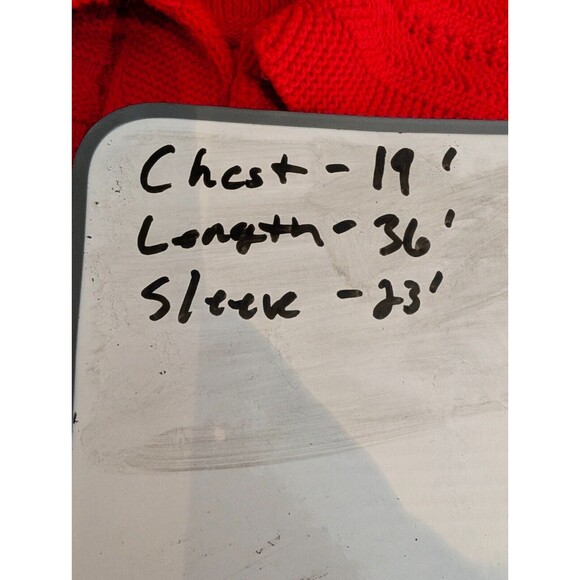 Chest - 19'
Length - 36'
Sleeve - 23'